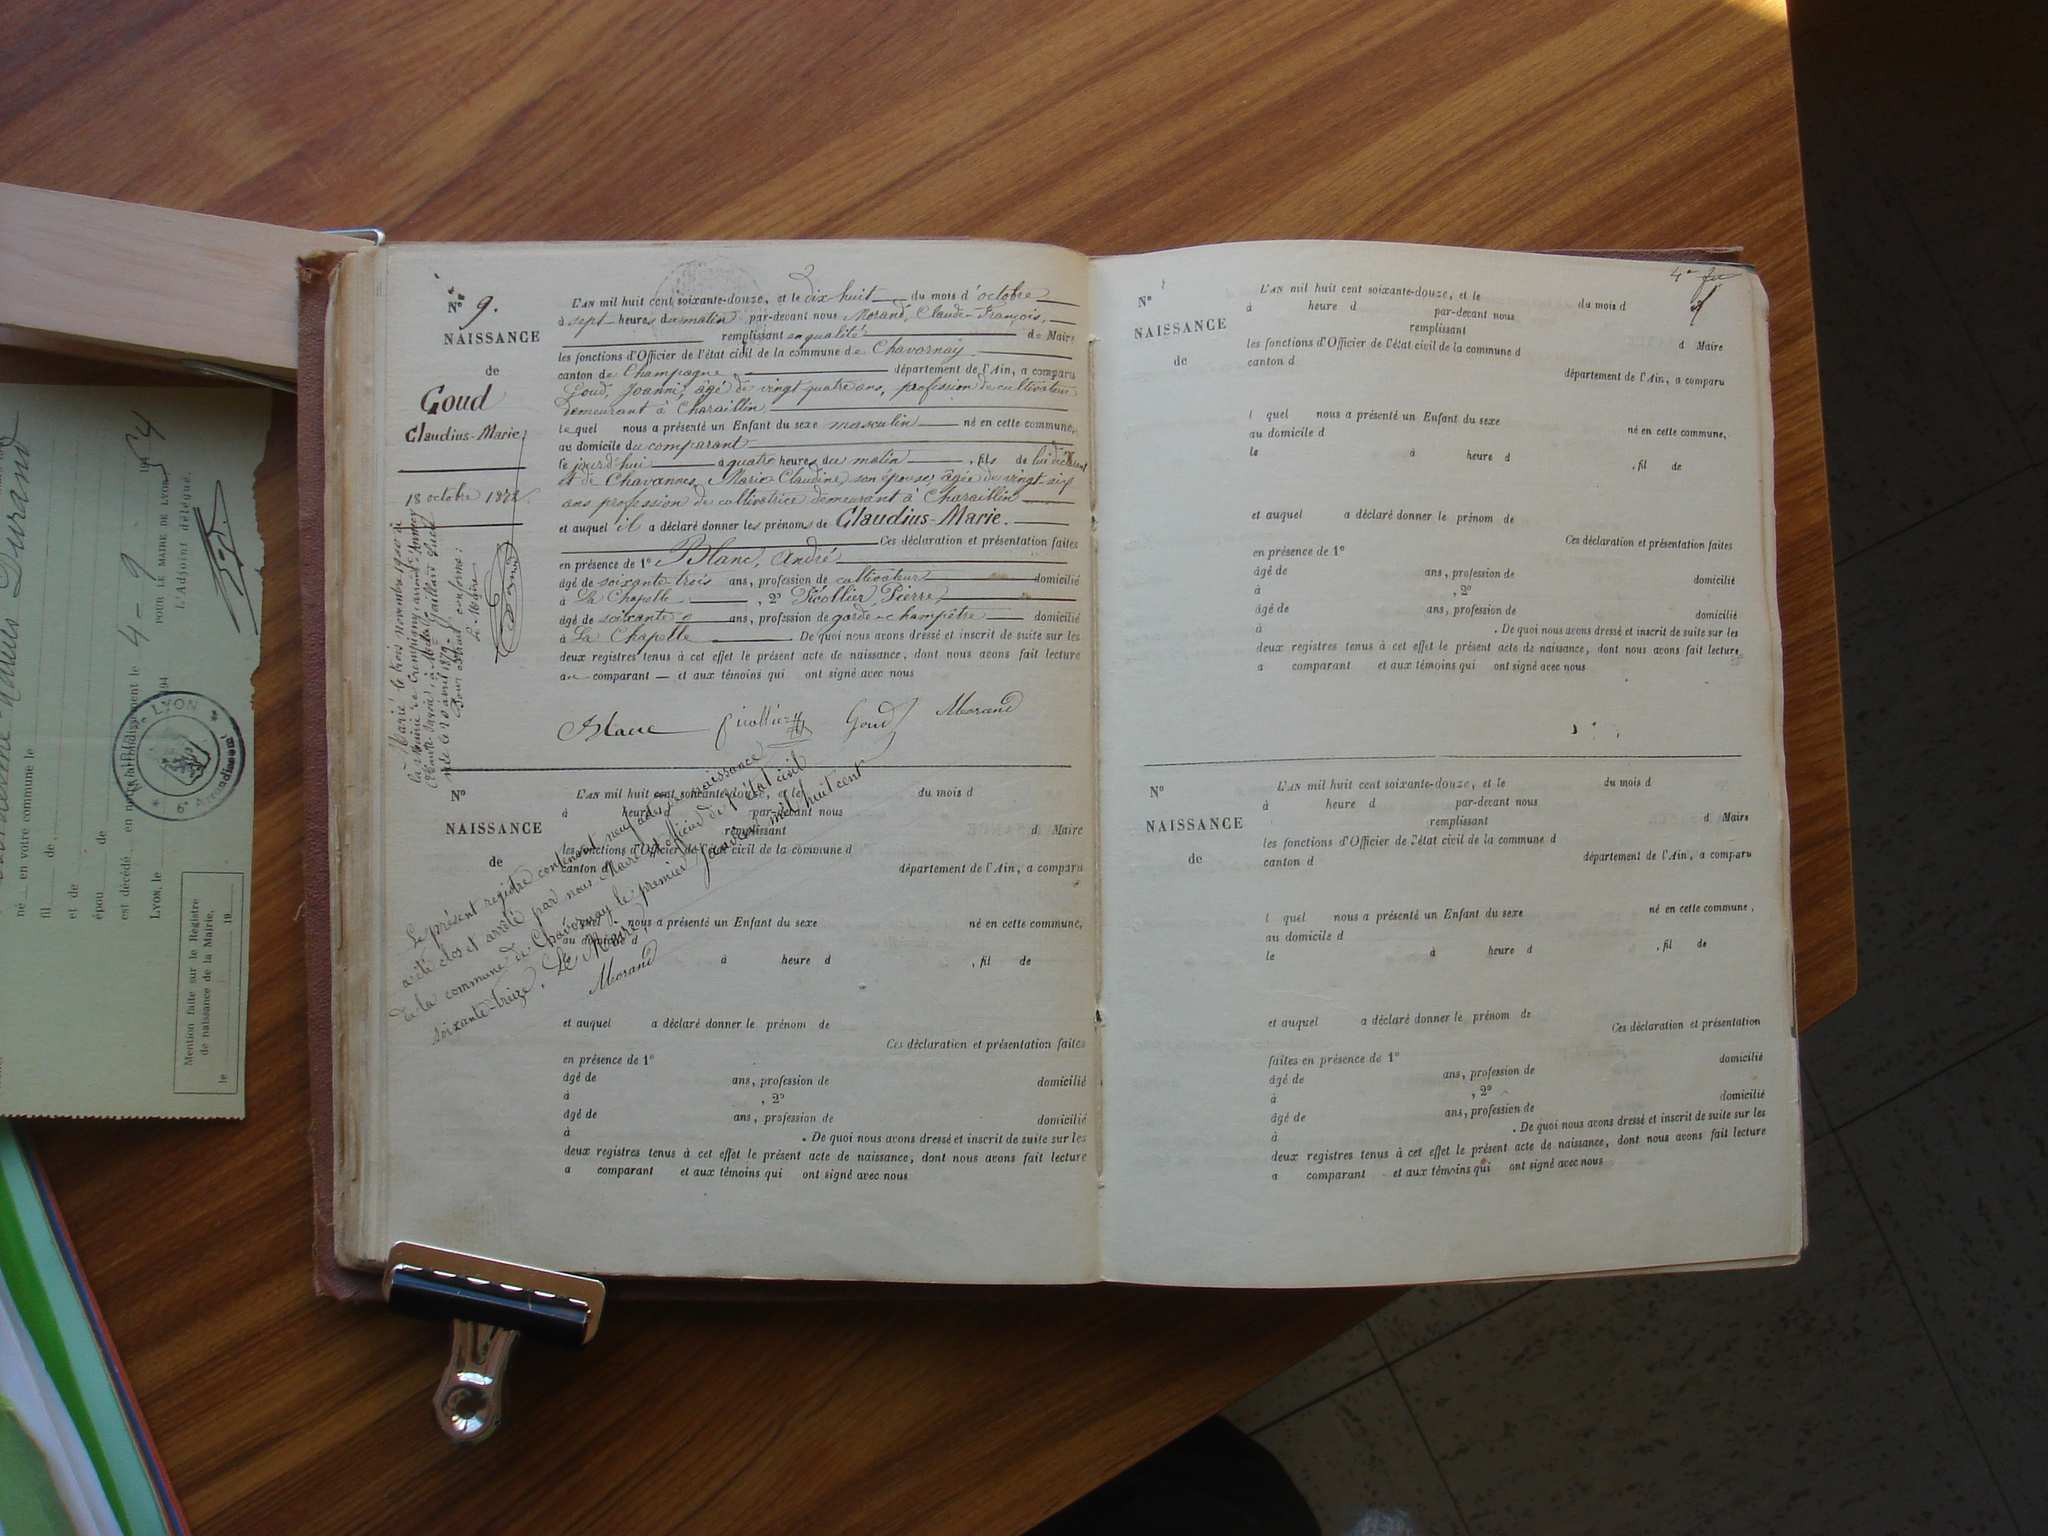 N° 9.
NAISSANCE
de
Goud
Claudius-Marie
18 octobre 1872.
L'AN mil huit cent soixante-douze, et le dix huit du mois d'octobre
à sept heures du matin par-devant nous Morand, Claude-François,
remplissant en qualité de Maire
les fonctions d'Officier de l'état civil de la commune de Chavornay
canton de Champagne, département de l'Ain, a comparu
Goud, Joanni, âgé de vingt quatre ans, profession de cultivateur
demeurant à Charaillin
lequel nous a présenté un Enfant du sexe masculin né en cette commune,
au domicile du comparant
le jourd'hui à quatre heures du matin, fils de lui déclarant
et de Chavannes, Marie Claudine, son épouse, âgée de vingt-six
ans profession de cultivatrice demeurant à Charaillin
et auquel il a déclaré donner les prénoms de Claudius-Marie.
Ces déclaration et présentation faites
en présence de 1° Blanc, André
âgé de soixante-trois ans, profession de cultivateur domicilié
à La Chapelle, 2° Picollier, Pierre,
âgé de soixante ans, profession de garde-champêtre domicilié
à La Chapelle. De quoi nous avons dressé et inscrit de suite sur les
deux registres tenus à cet effet le présent acte de naissance, dont nous avons fait lecture
au comparant et aux témoins qui ont signé avec nous
Blanc Picollier Goud Morand
Marié le trois novembre 19
la mairie de
(Haute-Savoie) à
née le 20 avril 1879.
Pour extrait conforme:
Le Maire
N°
NAISSANCE
de
L'AN mil huit cent soixante-douze, et le du mois d
à heure d par-devant nous
remplissant d Maire
les fonctions d'Officier de l'état civil de la commune d
canton d
département de l'Ain, a comparu
l quel nous a présenté un Enfant du sexe né en cette commune,
au domicile d
à heure d , fil de
et auquel a déclaré donner le prénom de
Ces déclaration et présentation faites
en présence de 1°
âgé de ans, profession de domicilié
à , 2°
âgé de ans, profession de domicilié
à . De quoi nous avons dressé et inscrit de suite sur les
deux registres tenus à cet effet le présent acte de naissance, dont nous avons fait lecture
a comparant et aux témoins qui ont signé avec nous
Le présent registre contenant neuf actes de naissance
a été clos et arrêté par nous Maire et officier de l'état civil
de la commune de Chavornay le premier Janvier mil huit cent
soixante-treize. Le Maire
Morand
N°
NAISSANCE
de
L'AN mil huit cent soixante-douze, et le du mois d
à heure d par-devant nous
remplissant d Maire
les fonctions d'Officier de l'état civil de la commune d
canton d
département de l'Ain, a comparu
l quel nous a présenté un Enfant du sexe
au domicile d né en cette commune,
le à heure d , fil de
et auquel a déclaré donner le prénom de
Ces déclaration et présentation faites
en présence de 1°
âgé de ans, profession de domicilié
à , 2°
âgé de ans, profession de domicilié
à . De quoi nous avons dressé et inscrit de suite sur les
deux registres tenus à cet effet le présent acte de naissance, dont nous avons fait lecture
a comparant et aux témoins qui ont signé avec nous
N°
NAISSANCE
de
L'AN mil huit cent soixante-douze, et le du mois d
à heure d par-devant nous
remplissant d Maire
les fonctions d'Officier de l'état civil de la commune d
canton d département de l'Ain, a comparu
l quel nous a présenté un Enfant du sexe né en cette commune,
au domicile d
le à heure d , fil de
et auquel a déclaré donner le prénom de
Ces déclaration et présentation
faites en présence de 1° domicilié
âgé de ans, profession de
à , 2° domicilié
âgé de ans, profession de
à . De quoi nous avons dressé et inscrit de suite sur les
deux registres tenus à cet effet le présent acte de naissance, dont nous avons fait lecture
a comparant et aux témoins qui ont signé avec nous
Durand
né en votre commune le
fil de
et de
épou de
est décédé en notre arrondissement le 4-9 1954
LYON, le 194
POUR LE MAIRE DE LYON,
L'Adjoint délégué.
LYON
6e Arrondissement
Mention faite sur le Registre
de naissance de la Mairie,
le 19